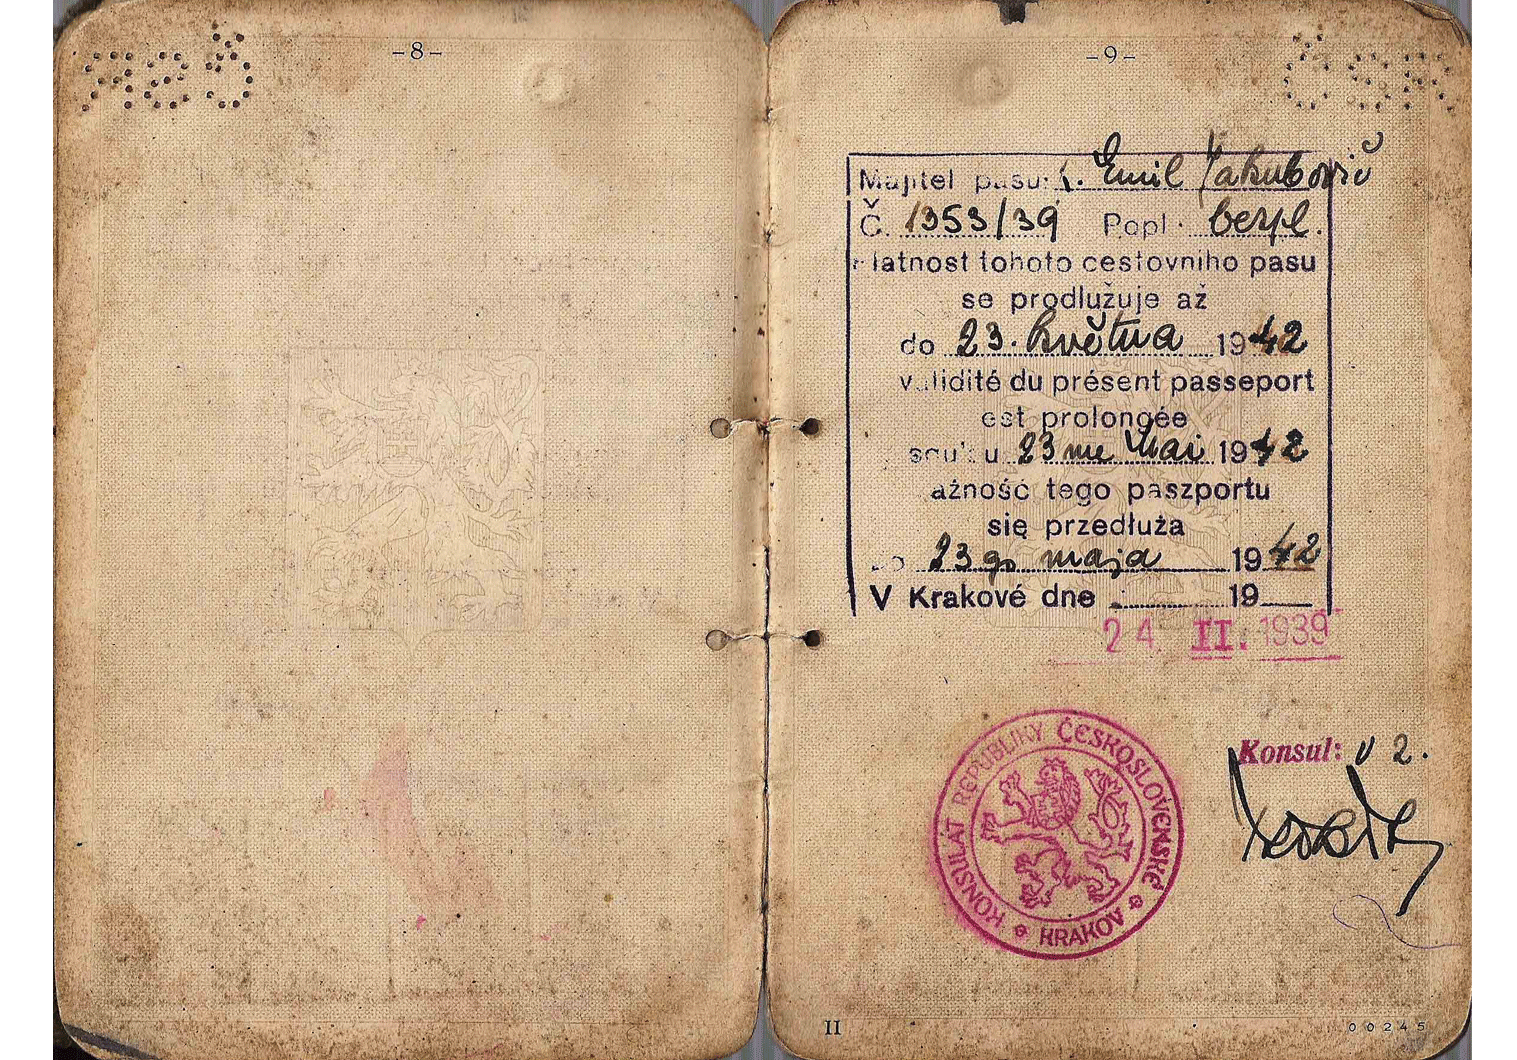 ČSR
–8–
–9–
ČSR
Majitel pasu: Emil Jakubovič
Č. 1353/39 Popl. bezpl.
latnost tohoto cestovního pasu
se prodlužuje až
do 23. května 1942
validité du présent passeport
est prolongée
23me Mai 1942
ażność tego paszportu
się przedłuża
do 23go maja 1942
V Krakově dne 19
24. II. 1939
KONSULÁT REPUBLIKY ČESKOSLOVENSKÉ
KRAKOV
Konsul: v z.
II
00245